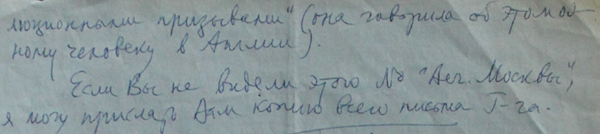 люционными призывами" (она говорила об этом од-
ному человеку в Англии).
Если Вы не видели этого № "Веч. Москвы",
я могу прислать Вам копию всего письма Г-га.